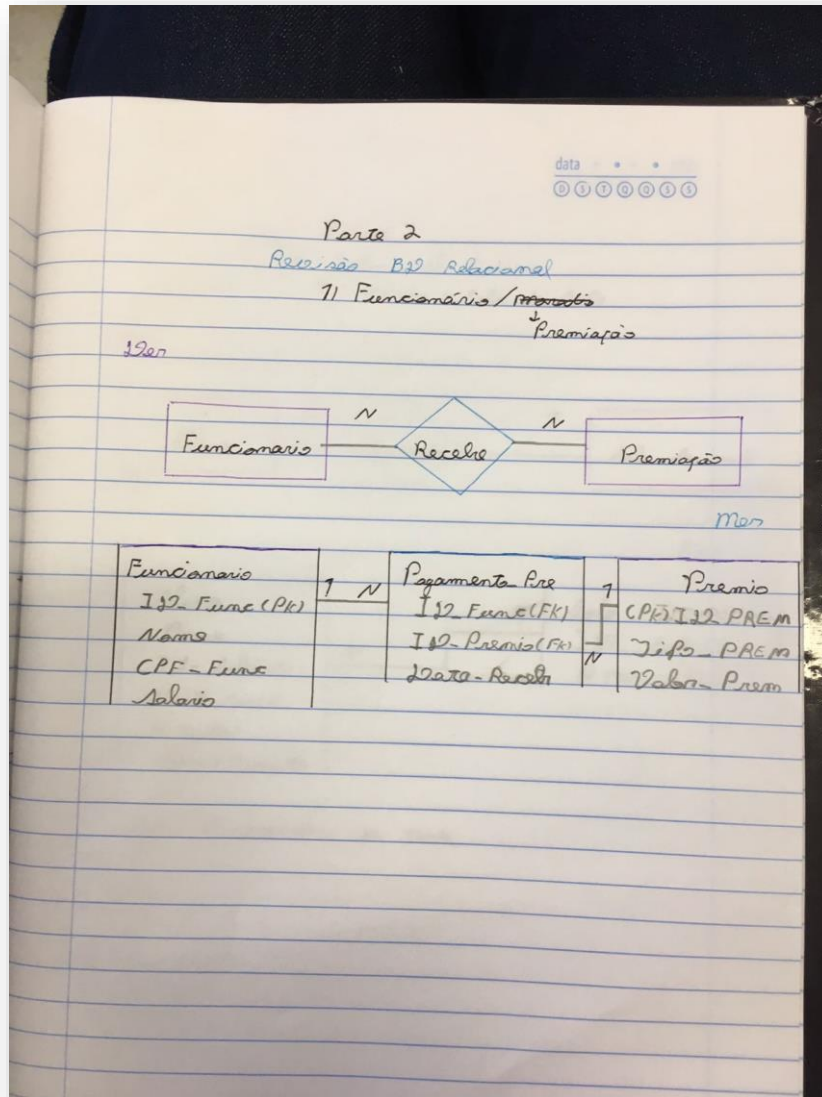 data
D S T Q Q S S
Parte 2
Revisão BD Relacional
1) Funcionário /
Premiação
Der
N N
Funcionario Recebe Premiação
Mer
Funcionario
ID_Func(PK)
Nome
CPF_Func
Salario
1 N
Pagamento_Pre
ID_Func(FK)
ID_Premio(FK)
Data_Receb
1
N
Premio
(PK) ID_PREM
Tipo_PREM
Valor_Prem